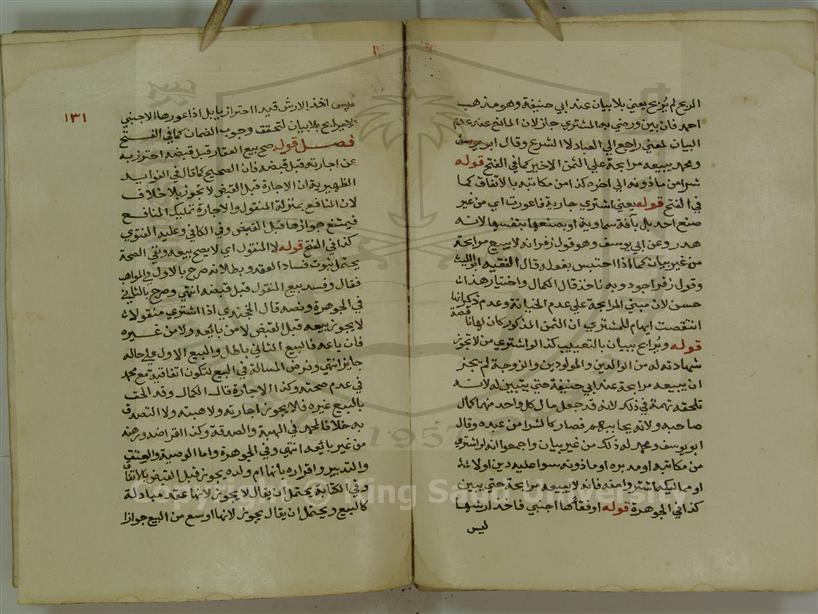 المربح لم يربح يعني بلا بيان عند ابي حنيفة وهو مذهب
احمد فان بين ورضي به المشتري جاز لان المانع عند عدم
البيان لمعني راجع الي العباد لا الشرع وقال ابو يوسف
ومحمد يبيعه مرابحة علي الثمن الاخير كما في الفتح قوله
شرا من ماذونه الي اخره كذا من مكاتبه بالاتفاق كما
في الفتح قوله يعني اشتري جارية فاعورت اي من غير
صنع احد بل بآفة سماوية او بصنعها بنفسها لانه
هدر وعن ابي يوسف وهو قول زفر انه لا يبيع مرابحة
من غير بيان كما اذا احتبس بفعله قال الفقيه ابو الليث
وقول زفر اجود وبه ناخذ قال الكمال واختيار هذا
حسن لان مبني المرابحة علي عدم الخيانة وعدم ذكر انها
انتقصت ايهام للمشتري ان الثمن المذكور كان لها ناقصة
قوله ويرابح ببيان بالتعييب كذا لو اشتري من لا تجوز
شهادته له من الوالدين والمولودين والزوجة لم يجز
ان يبيعه مرابحة عند ابي حنيفة حتي يتبين له لانه
تلحقه تهمة في ذلك لانه قد جعل مال كل واحد منهما كمال
صاحبه ولانه يحابيهم فصار كالشرا من عبده وقال
ابو يوسف ومحمد له ذلك من غير بيان واجمعوا انه لو اشتري
من مكاتبه او مدبره او ماذونه سوا عليه دين او لا
او مماليكه اشتروا منه فانه لا يبيعه مرابحة حتي يبين
كذا في الجوهرة قوله او فقأها اجنبي فاخذ ارشها
ليس
١٣١
ليس اخذ الارش قيدا احترازيا بل اذا عورها الاجنبي
لا يرابح بلا بيان لتحقق وجوب الضمان كما في الفتح
فصل قوله صح بيع العقار قبل قبضه احترز به
عن اجارته قبل قبضه فان الصحيح كما قال في الفوايد
الظهيرية ان الاجارة قبل القبض لا يجوز بلا خلاف
لان المنافع بمنزلة المنقول والاجارة تمليك المنافع
فيمتنع جوازها قبل القبض وفي الكافي وعليه الفتوي
كذا في الفتح قوله لا المنقول اي لا يصح بيعه ونفي الصحة
يحتمل ثبوت فساد العقد وبطلانه صرح بالاول في المواهب
فقال وفسد بيع المنقول قبل قبضه انتهي وصرح بالثاني
في الجوهرة ونصه قال الخجندي اذا اشتري منقولا
لا يجوز بيعه قبل القبض لا من بائعه ولا من غيره
فان باعه فالبيع الثاني باطل والبيع الاول علي حاله
جايز انتهي وفرض المسالة في البيع لتكون اتفاقية مع محمد
في عدم صحته وكذا الاجارة قال الكمال وقد الحق
بالبيع غيره فلا يجوز اجارته ولا هبته ولا التصدق
به خلافا لمحمد في الهبة والصدقة وكذا اقراضه ورهنه
من غير بائعه انتهي وفي الجوهرة واما الوصية والعتق
والتدبير واقراره بانها ام ولده يجوز قبل القبض بالاتفاق
وفي الكتابة يحتمل ان يقال لا يجوز لانها عقد مبادلة
كالبيع ويحتمل ان يقال يجوز لانها اوسع من البيع جوازا
Copyright © King Saud University
1957